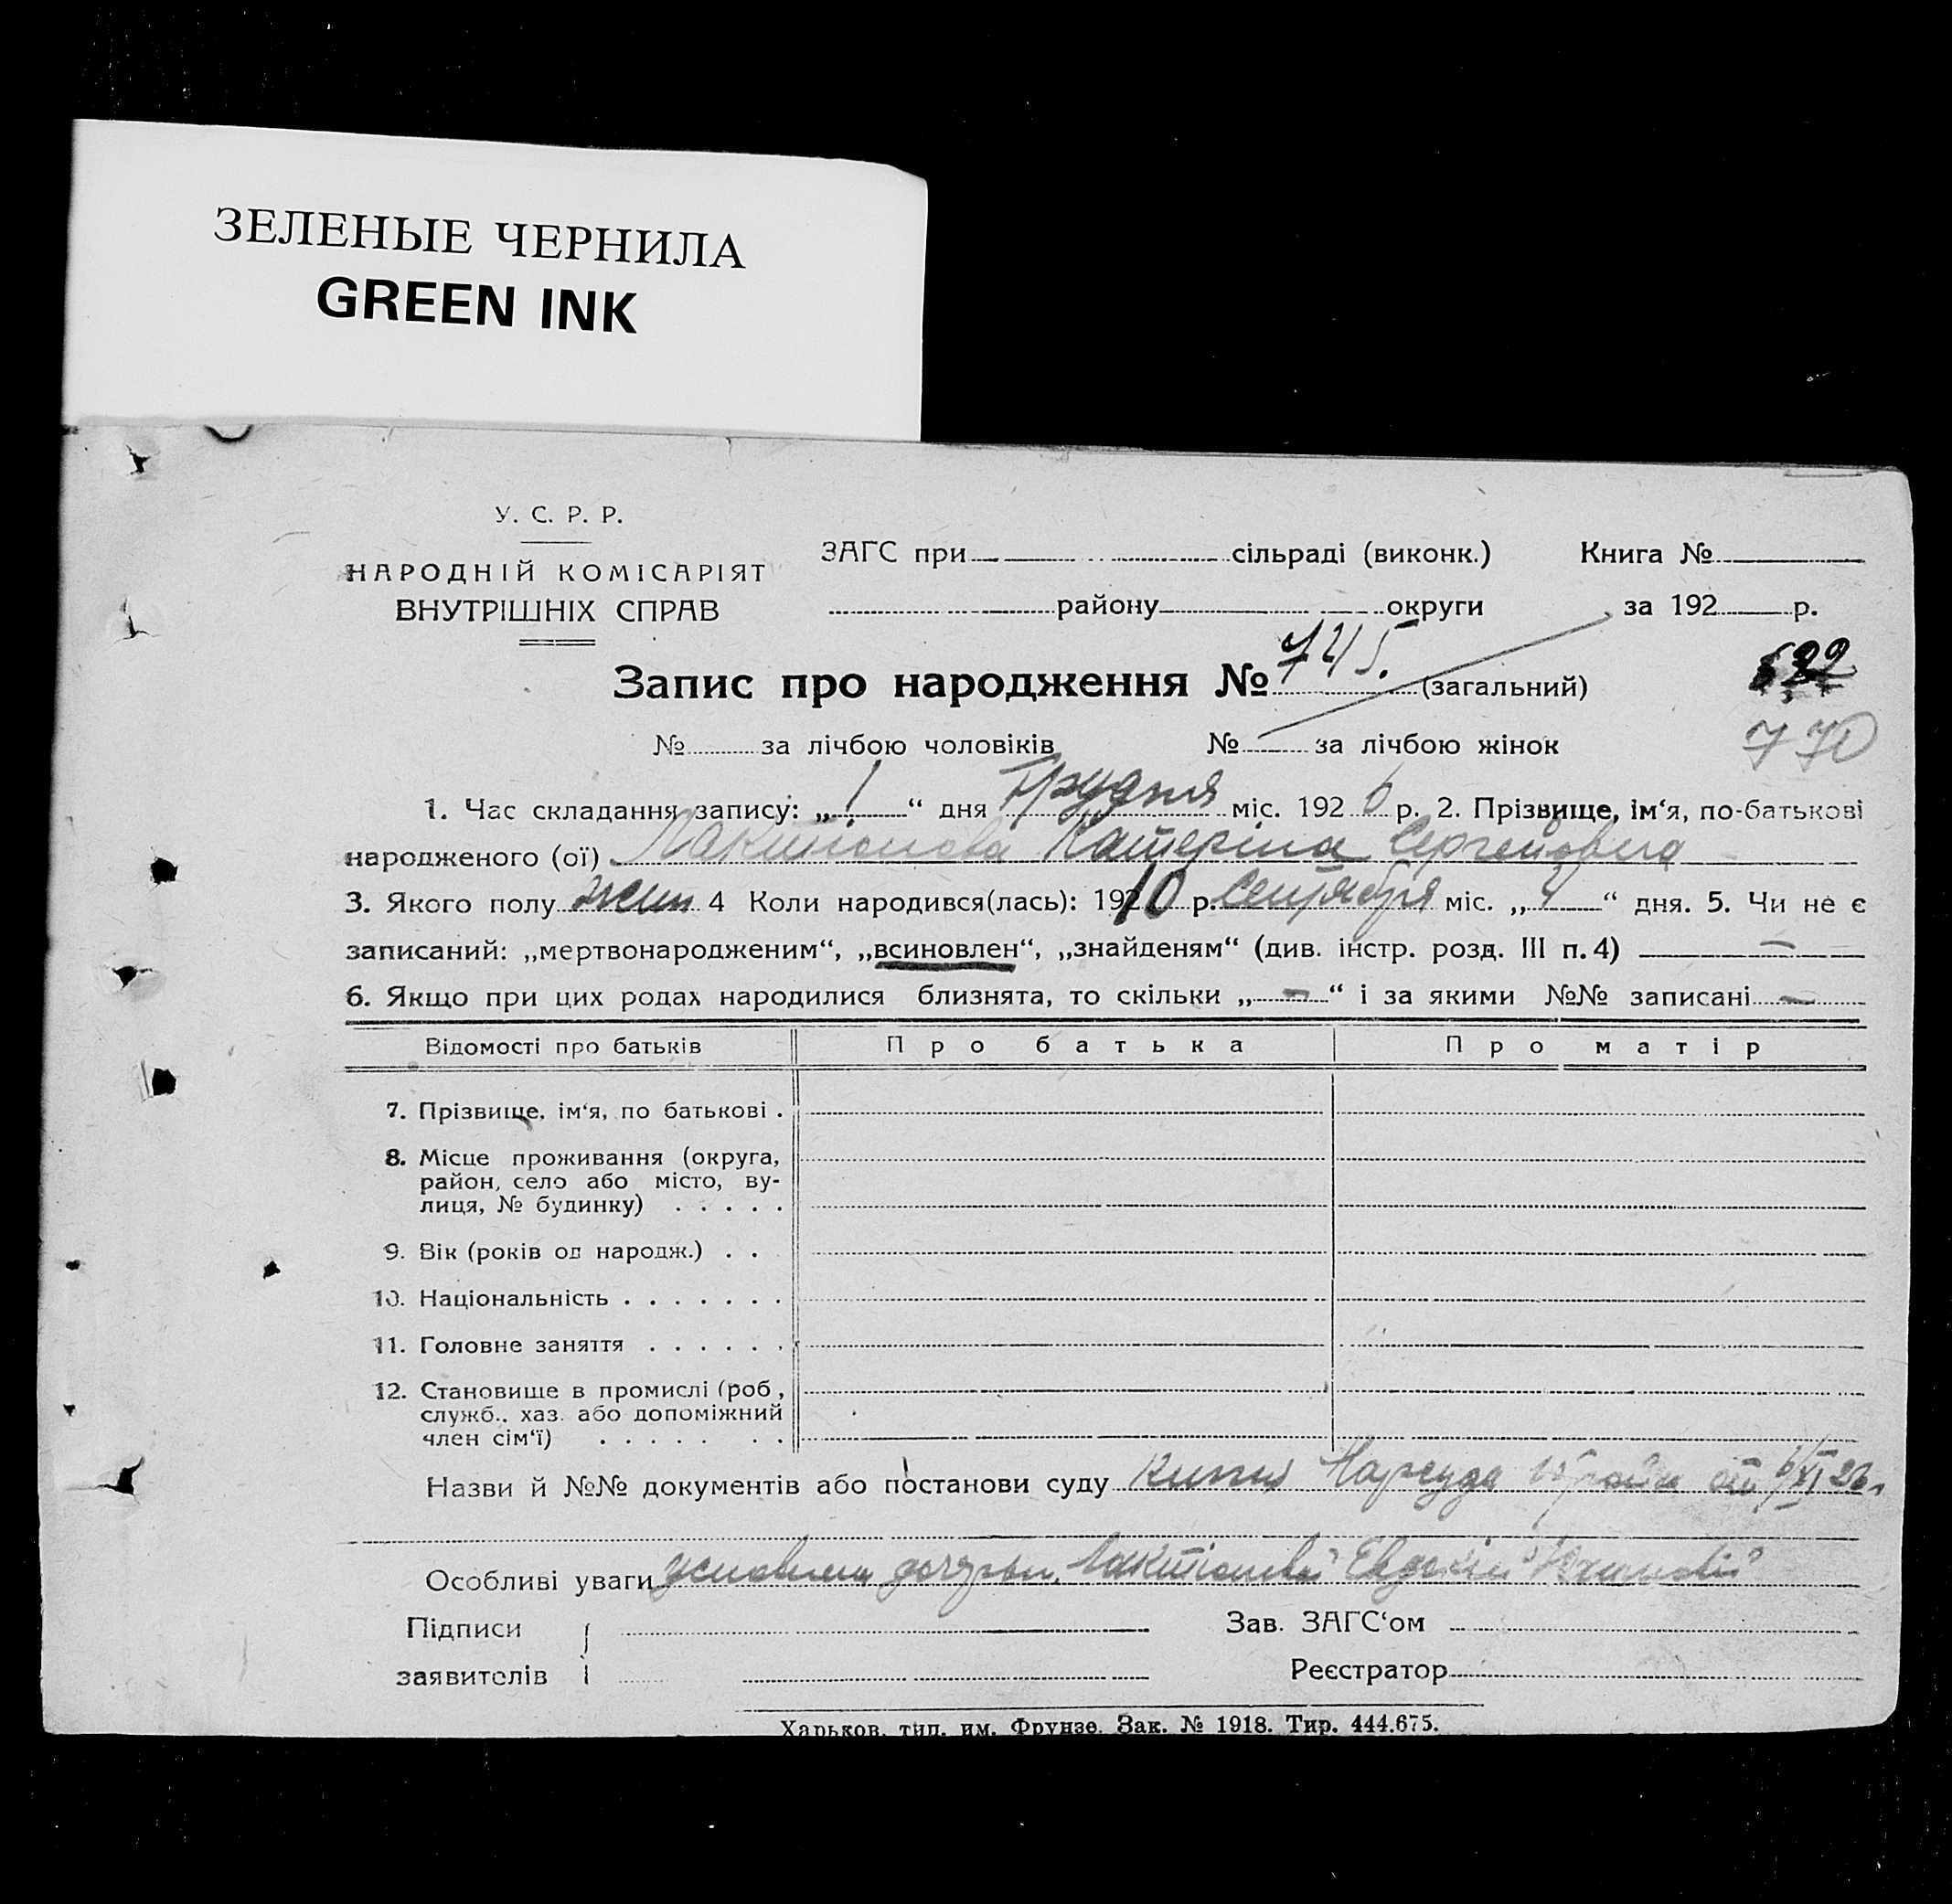 ЗЕЛЕНЫЕ ЧЕРНИЛА
GREEN INK
У. С. Р. Р.
НАРОДНІЙ КОМІСАРІЯТ
ВНУТРІШНІХ СПРАВ
ЗАГС при сільраді (виконк.) Книга №
району округи за 192 р.
Запис про народження № 745. (загальний)
770
№ за лічбою чоловіків № за лічбою жінок
1. Час складання запису: „1“ дня Грудня міс. 1926 р. 2. Прізвище, ім‘я, по-батькові
народженого (ої) Лактіонова Катеріна Сергеївна
3. Якого полу жин 4 Коли народився(лась): 1910 р. Сентября міс. „4“ дня. 5. Чи не є
записаний: „мертвонародженим“, „всиновлен“, „знайденям“ (див. інстр. розд. III п. 4) —
6. Якщо при цих родах народилися близнята, то скільки „—“ і за якими №№ записані —
Відомості про батьків Про батька Про матір
7. Прізвище, ім‘я, по батькові .
8. Місце проживання (округа,
район, село або місто, ву-
лиця, № будинку) . . . . .
9. Вік (років од народж.) . .
10. Національність . . . . . . .
11. Головне заняття . . . . . .
12. Становище в промислі (роб.,
служб., хаз. або допоміжний
член сім‘ї) . . . . . . .
Назви й №№ документів або постанови суду Нарсуда от 6/XI 26 г
Особливі уваги Лактіоновой Евдокіи
Підписи
заявителів
Зав. ЗАГС‘ом
Реєстратор
Харьков, тип. им. Фрунзе. Зак. № 1918. Тир. 444.675.